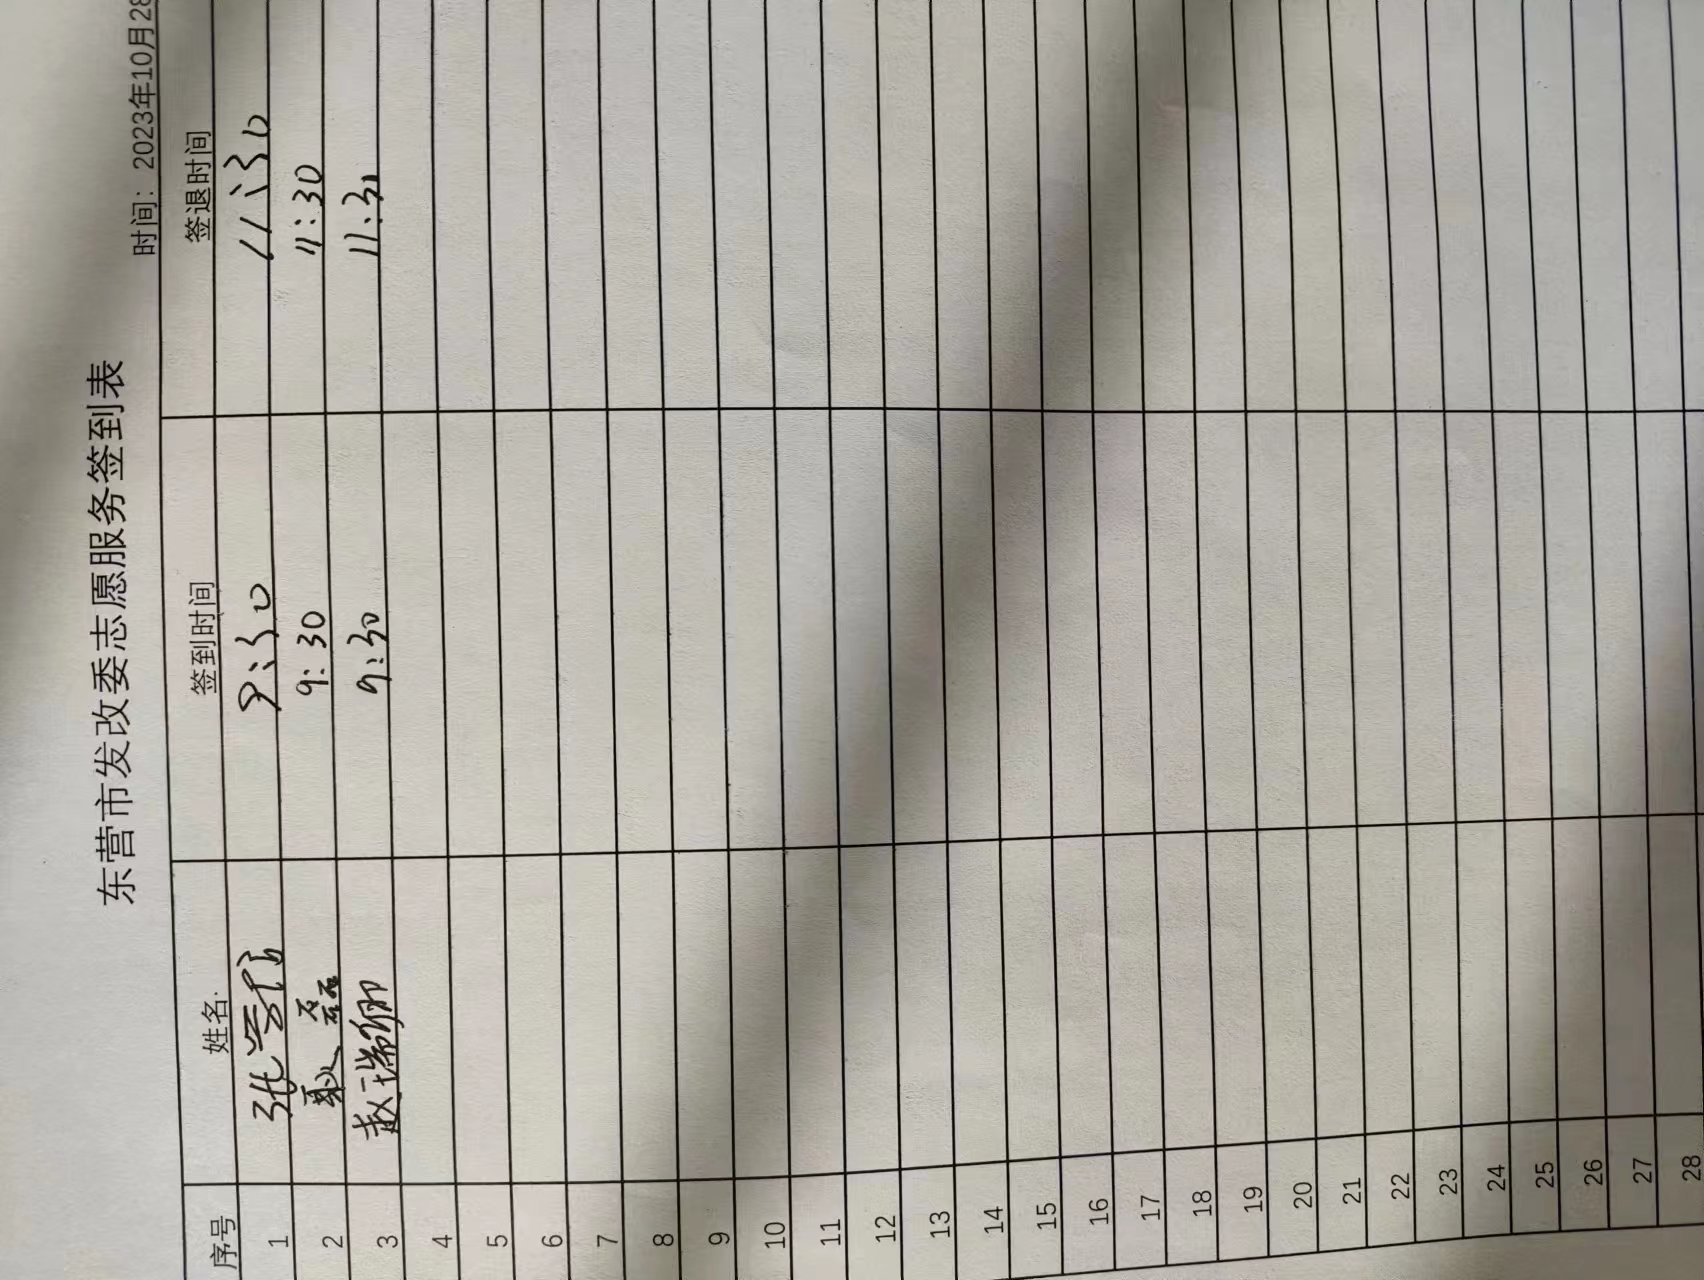 东营市发改委志愿服务签到表
时间：2023年10月28
序号 姓名 签到时间 签退时间
1 张 9:30 11:30
2 聂磊 9:30 11:30
3 赵瑞卿 9:30 11:30
4
5
6
7
8
9
10
11
12
13
14
15
16
17
18
19
20
21
22
23
24
25
26
27
28